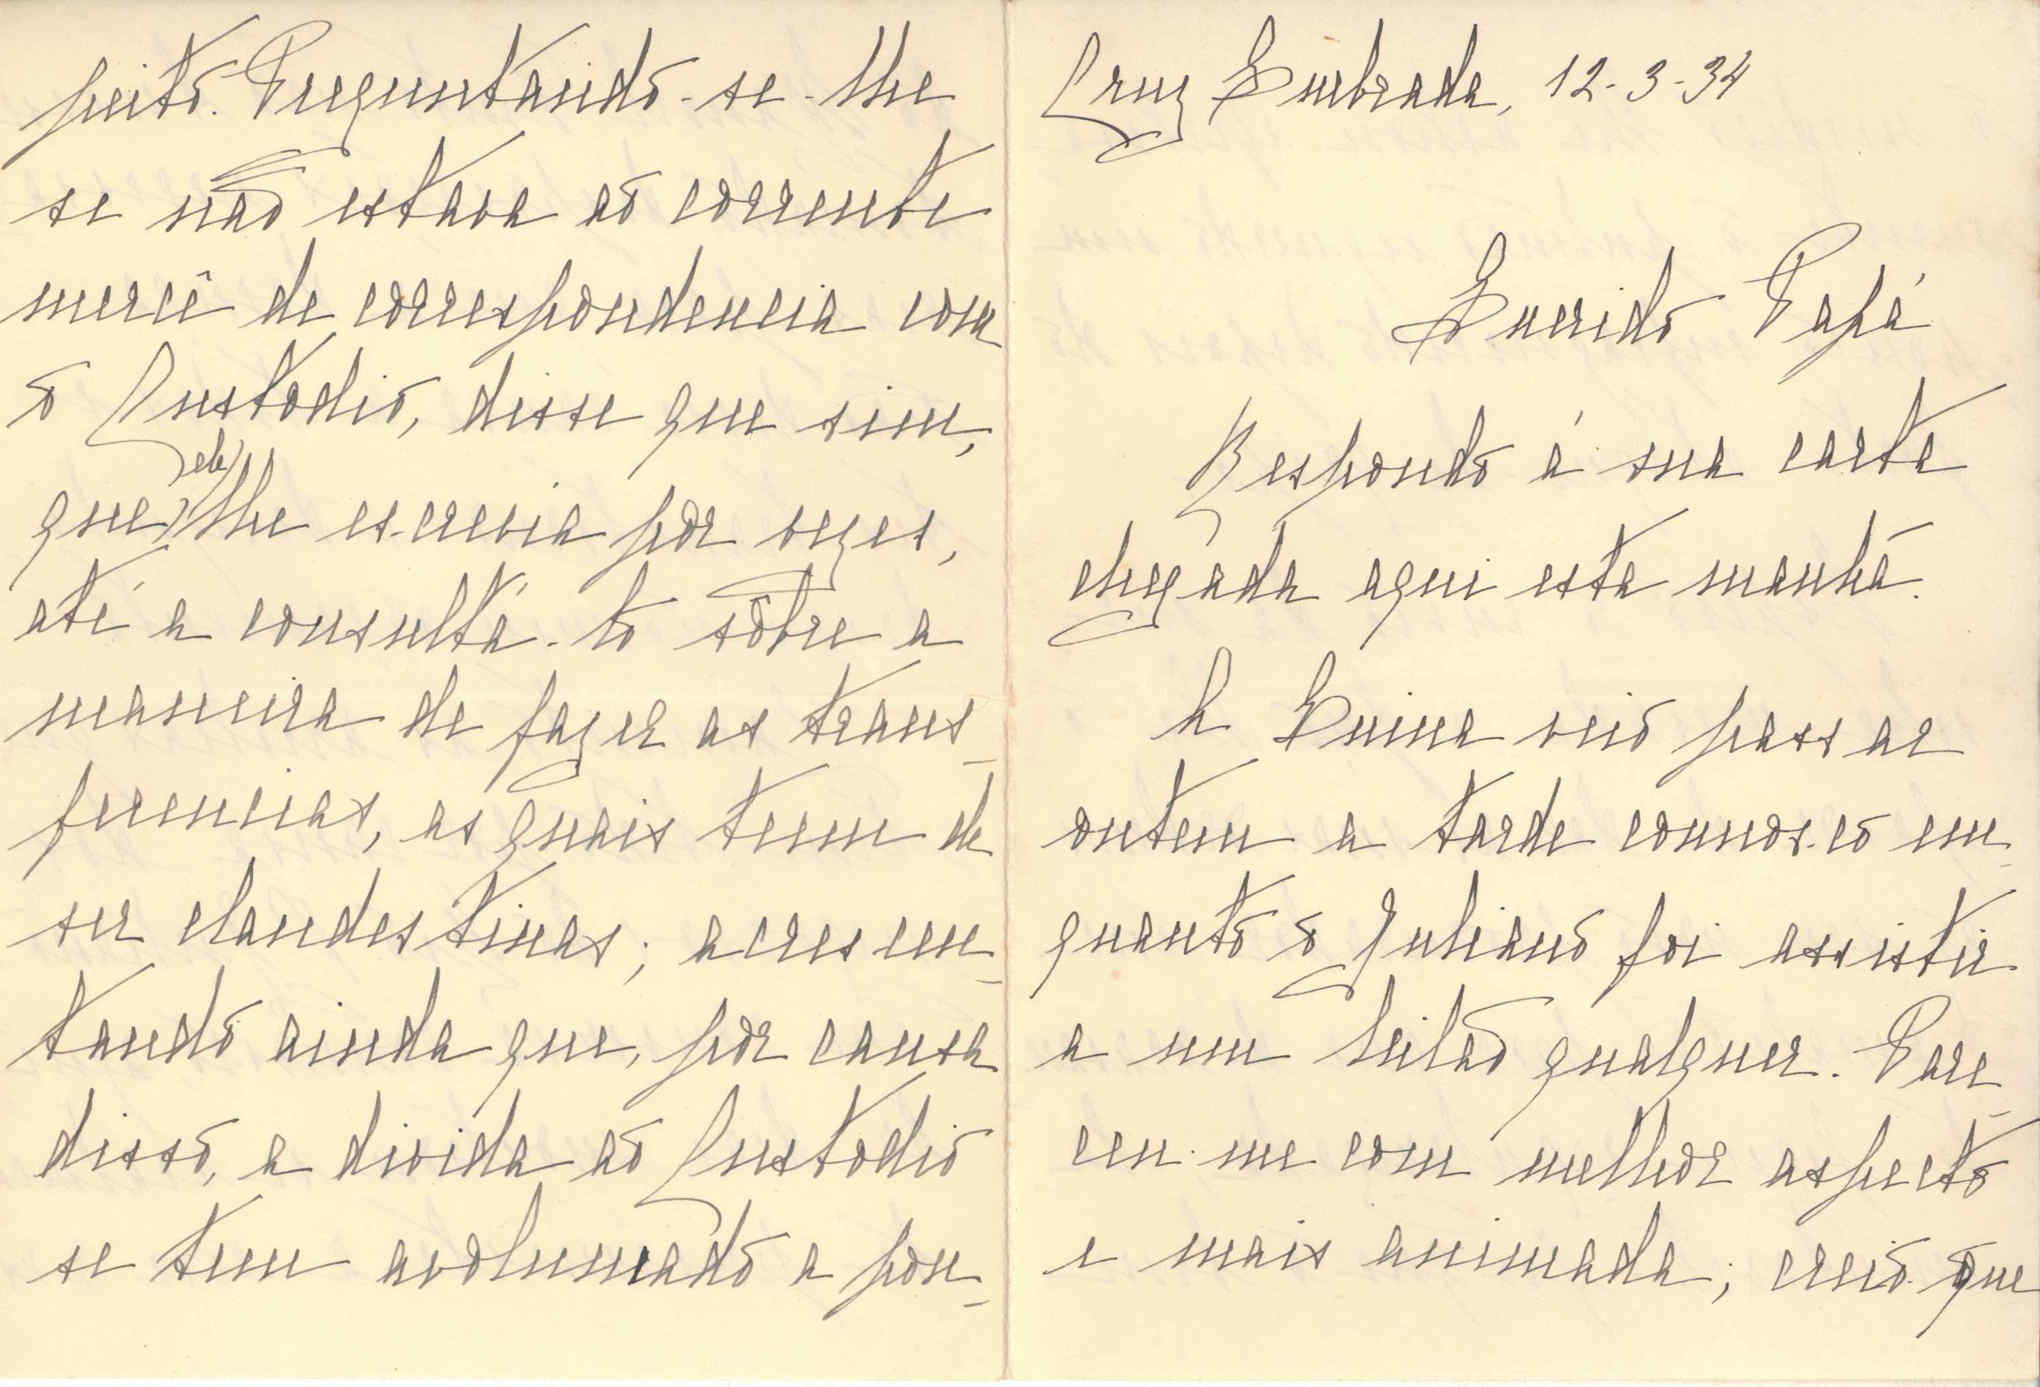 Cruz Quebrada, 12-3-34
Querido Papá
Respondo á sua carta
chegada aqui esta manhã.
A Quina veio passar
ontem a tarde connosco em-
quanto o Juliano foi assistir
a um leilão qualquer. Pare-
ceu-me com melhor aspecto
e mais animada; creio que
peito. Preguntando-se-lhe
se não estava ao corrente
mercê de correspondencia com
o Custodio, disse que sim,
que ele lhe escrevia por vezes,
até a consultá-lo sôbre a
maneira de fazer as trans-
ferencias, as quais teem de
ser clandestinas; acrescen-
tando ainda que, por causa
disso, a divida ao Custodio
se tem avolumado a pon-